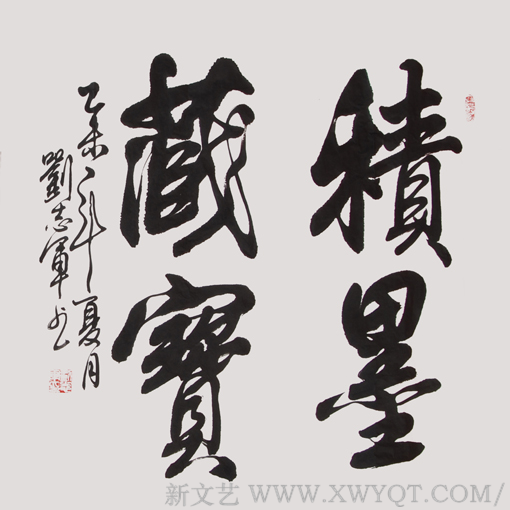 積墨
藏寶
乙未之年夏月
劉志軍书
新文艺 WWW.XWYQT.COM/